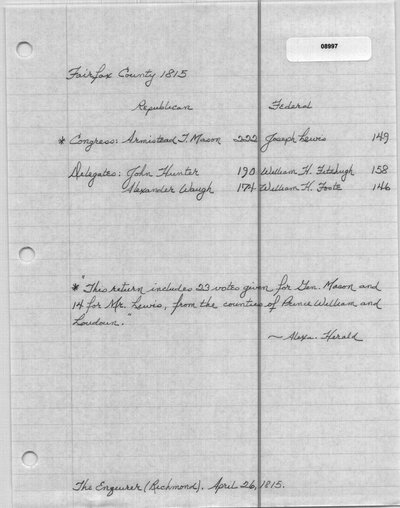 08997
Fairfax County 1815
Republican Federal
* Congress: Armistead T. Mason 222 Joseph Lewis 149
Delegates: John Hunter 190 William H. Fitzhugh 158
Alexander Waugh 174 William H. Foote 146
"
* This return includes 23 votes given for Gen. Mason and
14 for Mr. Lewis, from the counties of Prince William and
Loudoun."
~ Alexa. Herald
The Enquirer (Richmond). April 26, 1815.